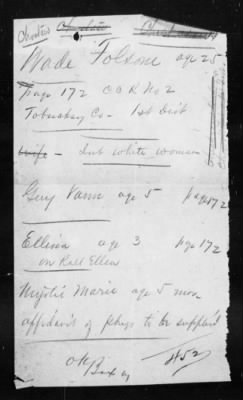 Wade Folsom age 25
page 172 CCR No 2
Tobucksy Co - 1st Dist
wife - Int white woman
Gery Vann age 5 page 172
Ellissa age 3 page 172
on Roll Ellen
Mystic Marie age 5 mos.
affidavit of phys to be supplied
OK
452